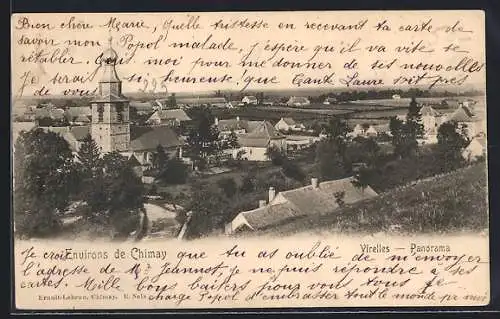 Bien chère Marie, Quelle tristesse en recevant ta carte de
savoir mon Popol malade, j'espère qu'il va vite se
rétablir et toi pour me donner de ses nouvelles
Je serais si heureuse, que Tante Laure soit près
de vous
Environs de Chimay
Virelles — Panorama
Je crois que tu as oublié de m'envoyer
l'adresse de Mr Jeannot, je ne puis répondre à ses
cartes. Mille bons baisers pour vous tous je te
charge Popol d'embrasser tout le monde pr moi
Erault-Lebrun, Chimay. E. Nels